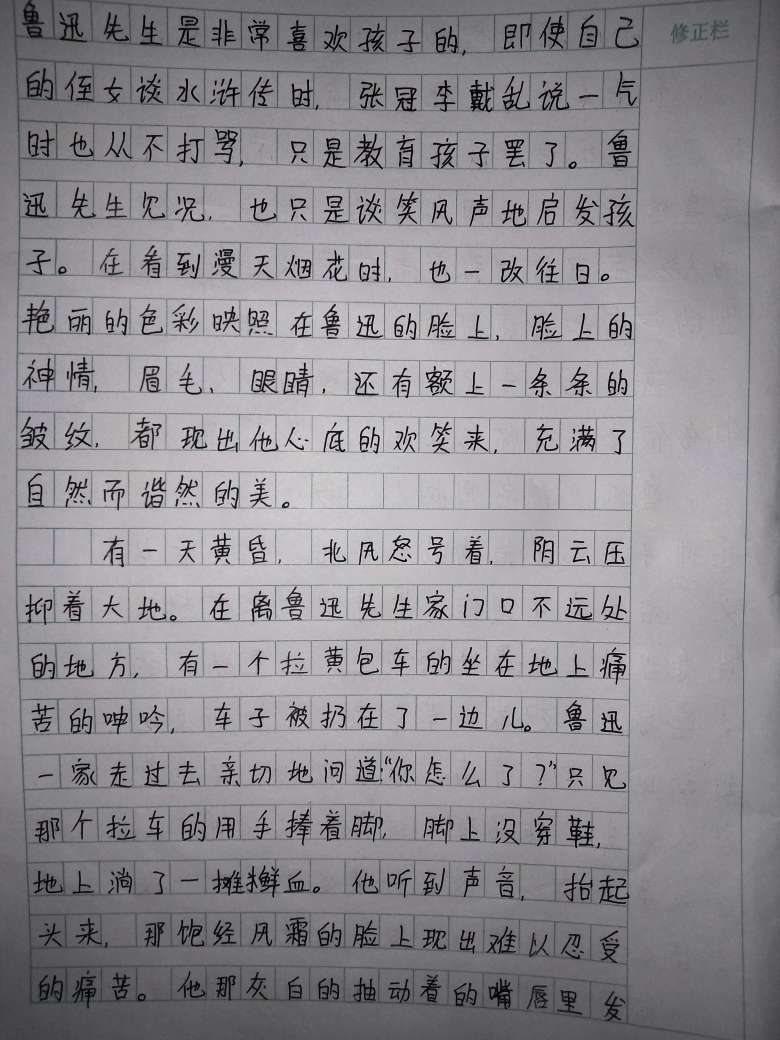 鲁迅先生是非常喜欢孩子的，即使自己
修正栏
的侄女谈水浒传时，张冠李戴乱说一气
时也从不打骂，只是教育孩子罢了。鲁
迅先生见况，也只是谈笑风声地启发孩
子。在看到漫天烟花时，也一改往日。
艳丽的色彩映照在鲁迅的脸上，脸上的
神情，眉毛、眼睛，还有额上一条条的
皱纹，都现出他心底的欢笑来，充满了
自然而谐然的美。
有一天黄昏，北风怒号着，阴云压
抑着大地。在离鲁迅先生家门口不远处
的地方，有一个拉黄包车的坐在地上痛
苦的呻吟，车子被扔在了一边儿。鲁迅
一家走过去亲切地问道：“你怎么了？”只见
那个拉车的用手捧着脚，脚上没穿鞋，
地上淌了一摊鲜血。他听到声音，抬起
头来，那饱经风霜的脸上现出难以忍受
的痛苦。他那灰白的抽动着的嘴唇里发